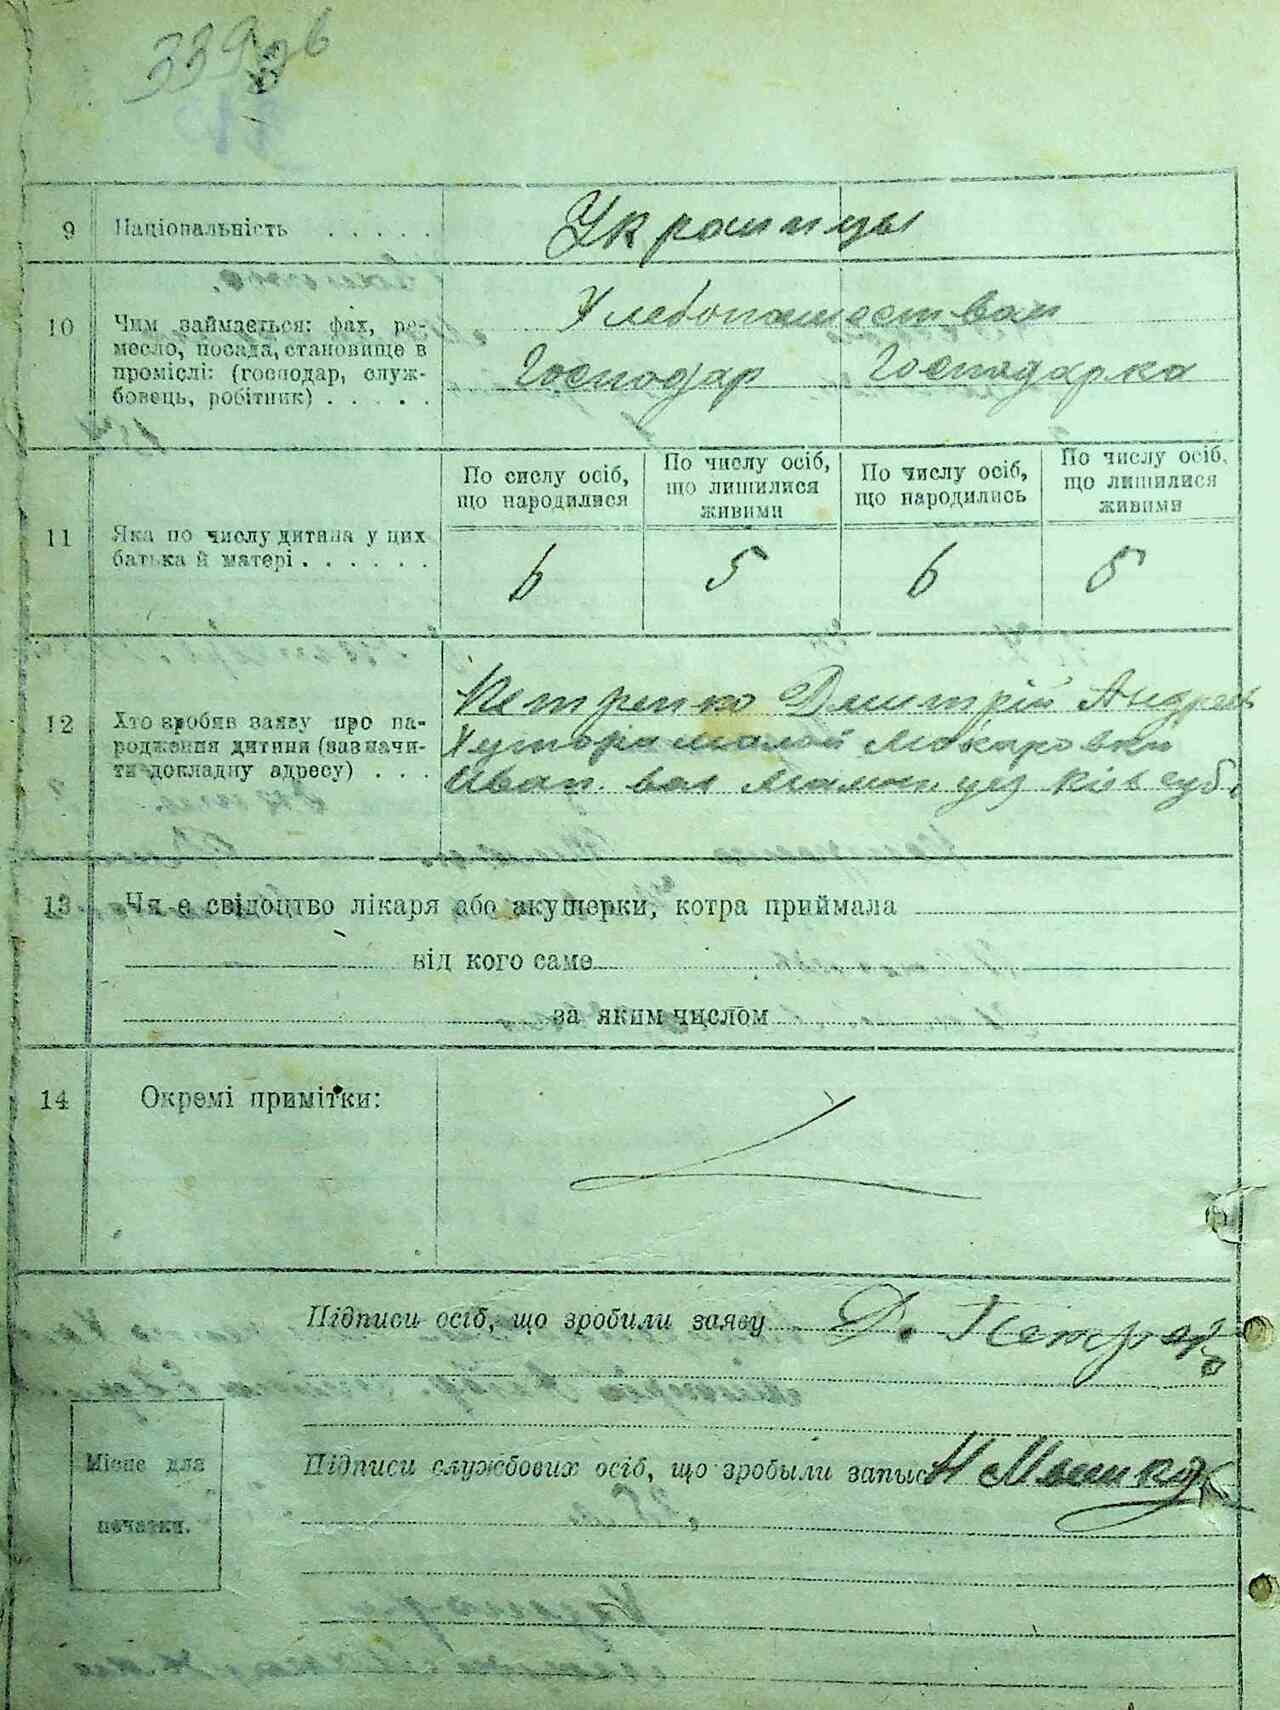 339 об
9 Національність . . . . . Украинцы
10 Чим займається: фах, ре-
месло, посада, становище в
проміслі: (господар, служ-
бовець, робітник) . . . . .
Хлебопашеством
Господар Господарка
11 Яка по числу дитина у цих
батька й матері . . . . . .
По сислу осіб,
що народилися
По числу осіб,
що лишилися
живими
По числу осіб,
що народились
По числу осіб,
що лишилися
живими
6 5 6 5
12 Хто зробив заяву про на-
родження дитини (зазначи-
ти докладну адресу) . . .
Петренко Дмитрій Андреев
Хутора малой Макаровки
Иван. вол уез Кіев губ.
13 Чи є свідоцтво лікаря або акушерки, котра приймала
від кого саме
за яким числом
14 Окремі примітки:
Підписи осіб, що зробили заяву Д. Петренко
Підписи службових осіб, що зробыли запыс
Місце для
печатки.